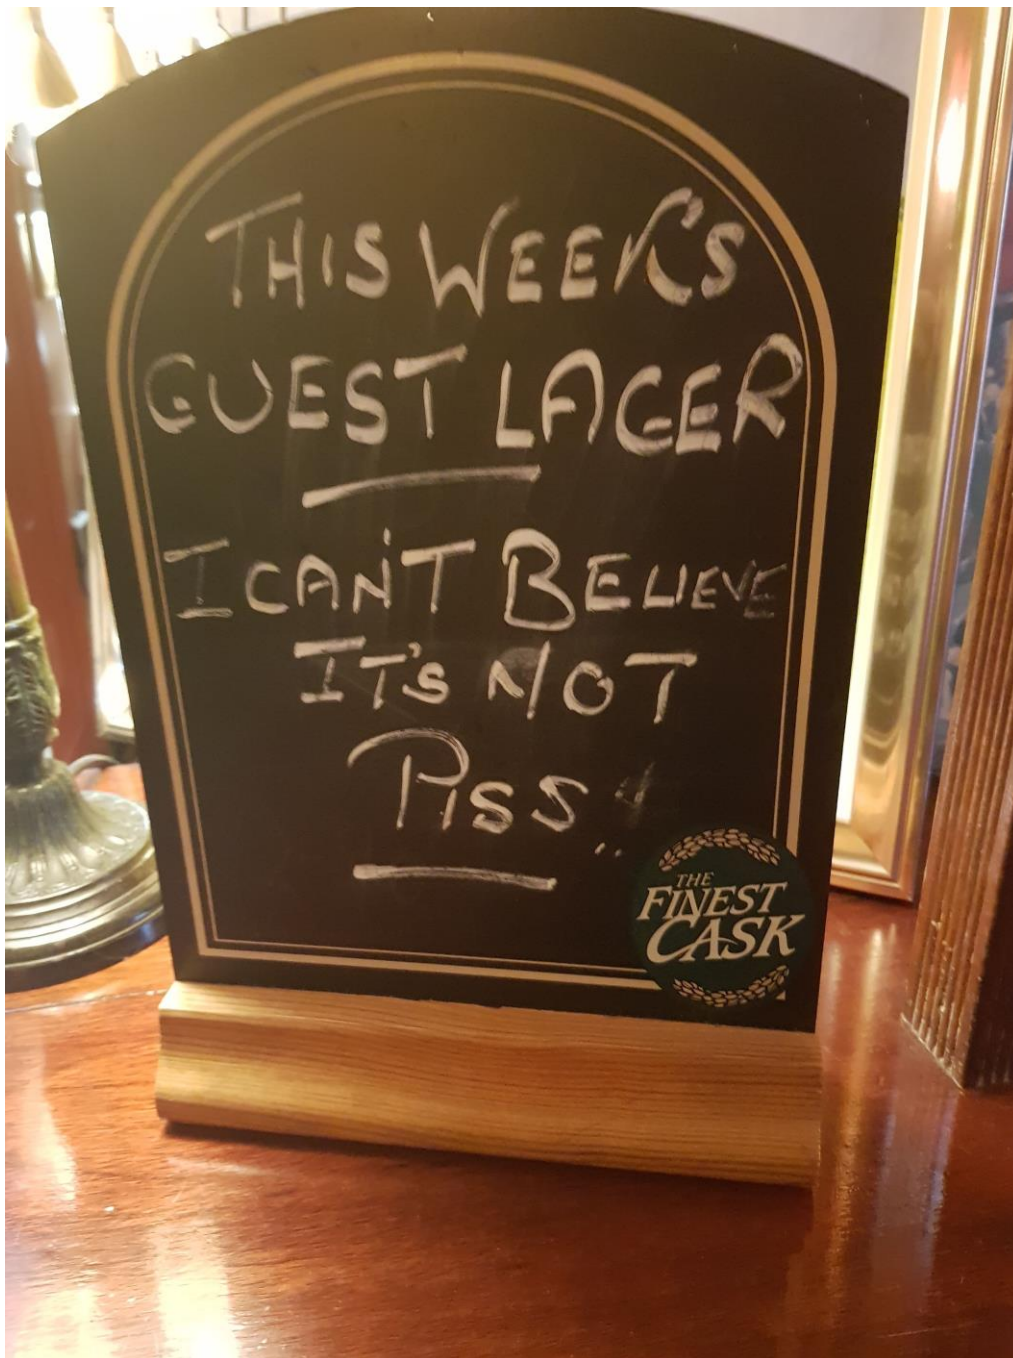 THIS WEEK'S
GUEST LAGER
I CAN'T BELIEVE
IT'S NOT
PISS..
THE
FINEST
CASK